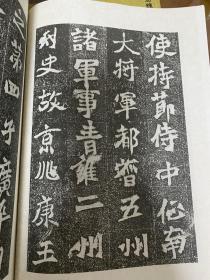 使持節侍中征南
大将軍都督五州
諸軍事青雍二州
刺史故京兆康王
之第四子廣平